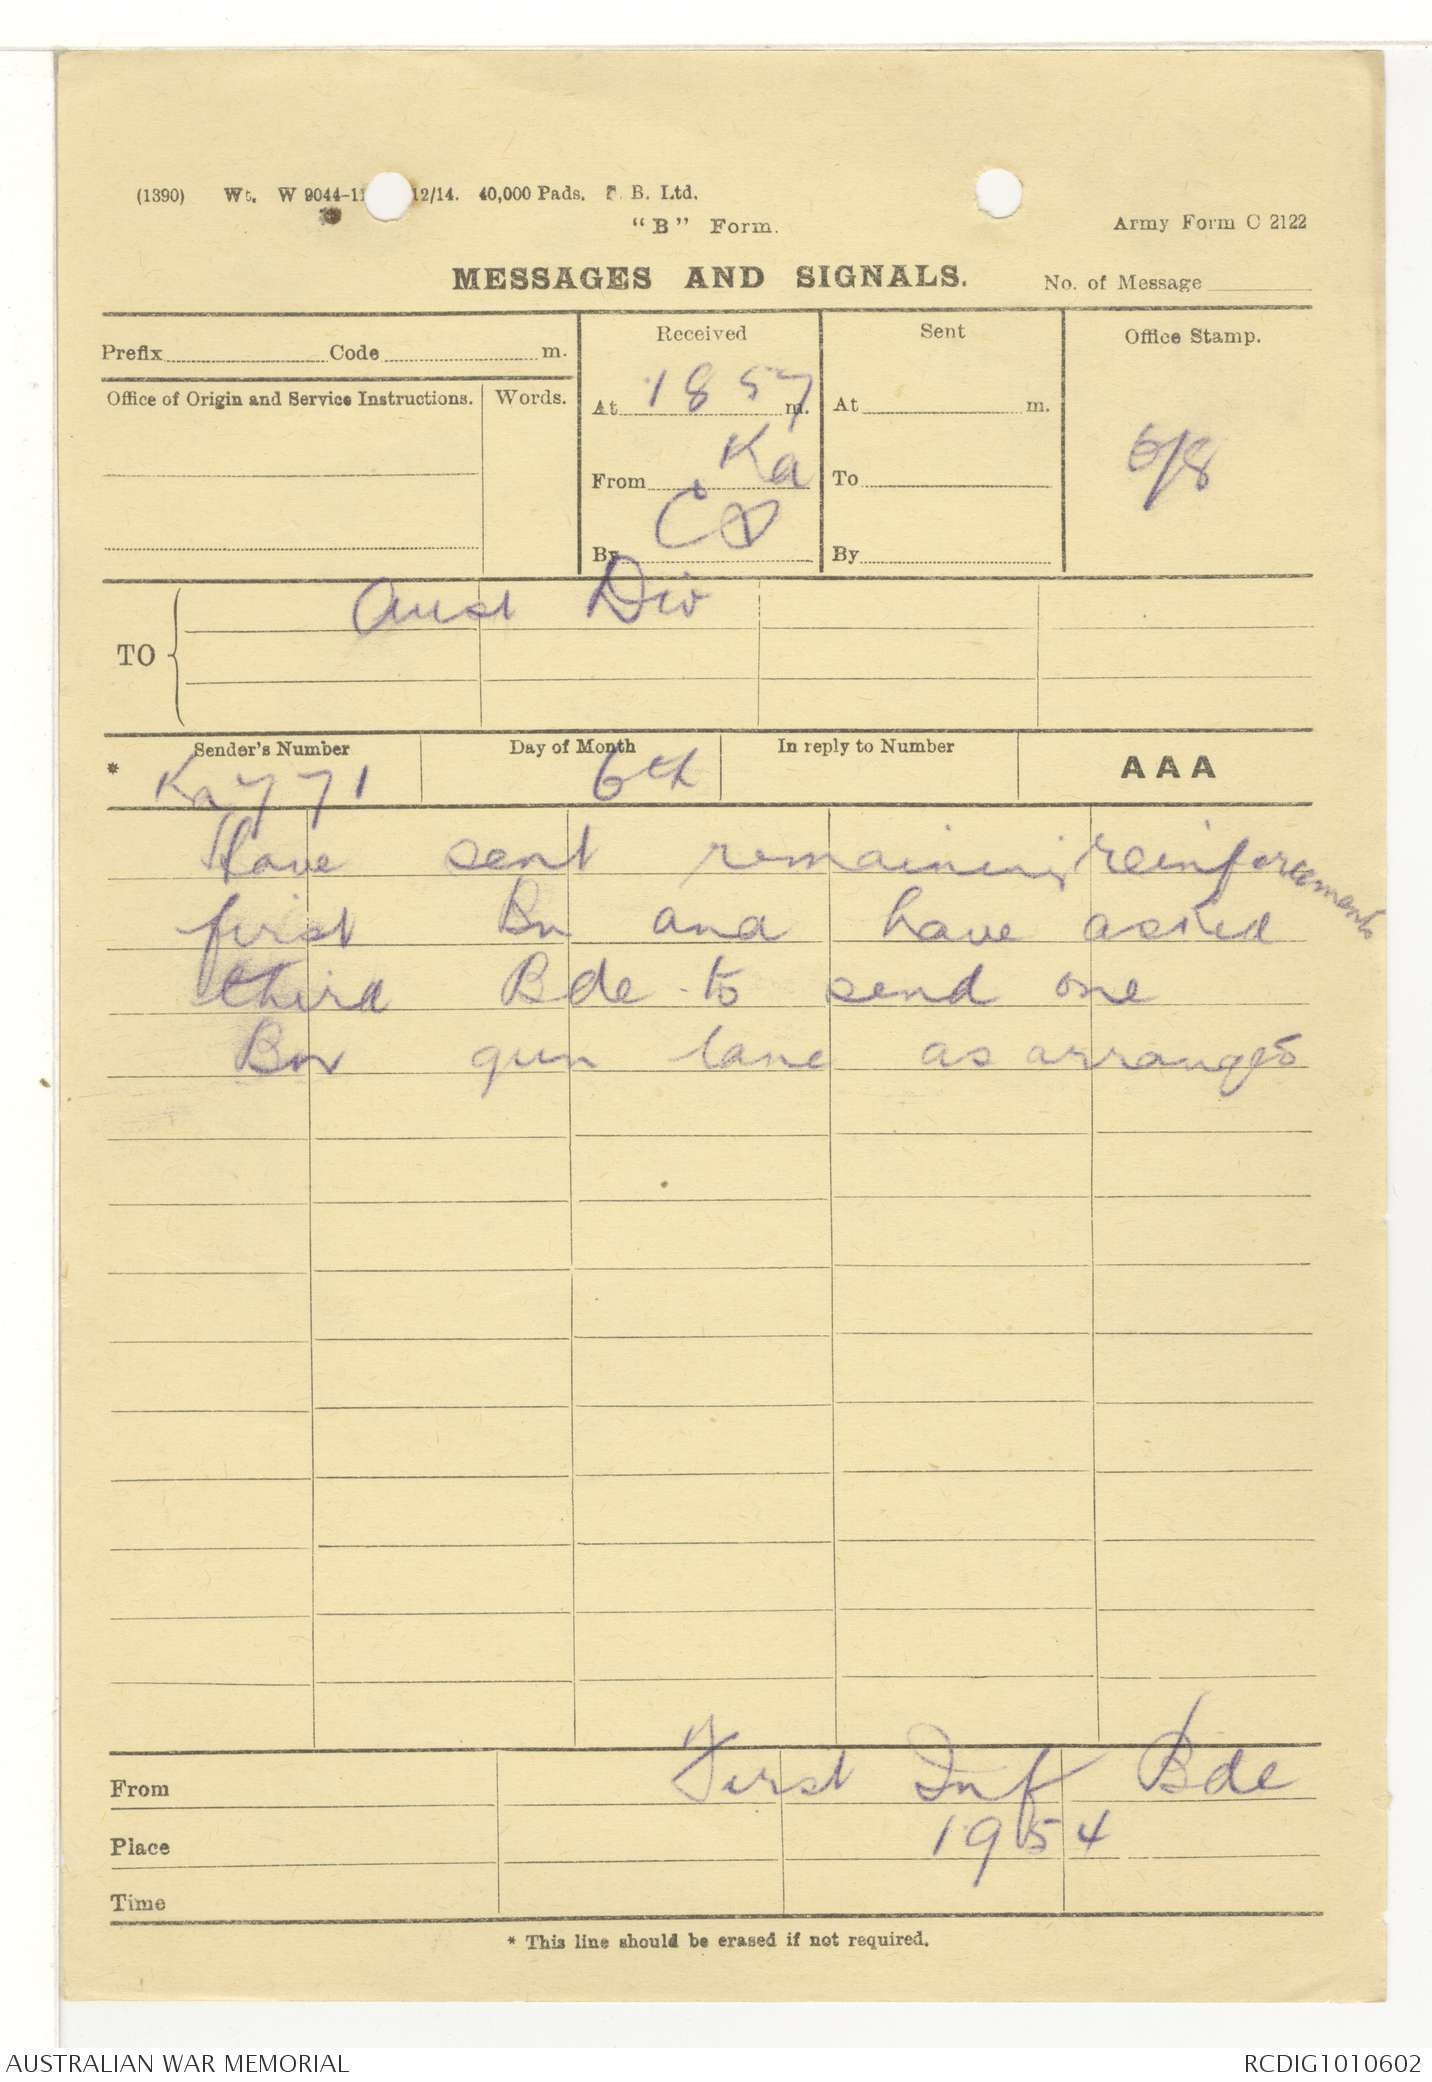 (1390) Wt. W 9044-11 12/14. 40,000 Pads. B. Ltd.
"B" Form.
Army Form C 2122
MESSAGES AND SIGNALS.
No. of Message
Prefix Code m.
Office of Origin and Service Instructions. Words.
Received
At 1857 m.
From Ka
By
Sent
At m.
To
By
Office Stamp.
6/8
TO
Aust Div
Sender's Number Day of Month In reply to Number
* Ka 771 6th AAA
Have sent remaining reinforcements
first Bn and have asked
third Bde to send one
Bn gun lane as arranged
From First Inf Bde
Place 1954
Time
* This line should be erased if not required.
AUSTRALIAN WAR MEMORIAL
RCDIG1010602